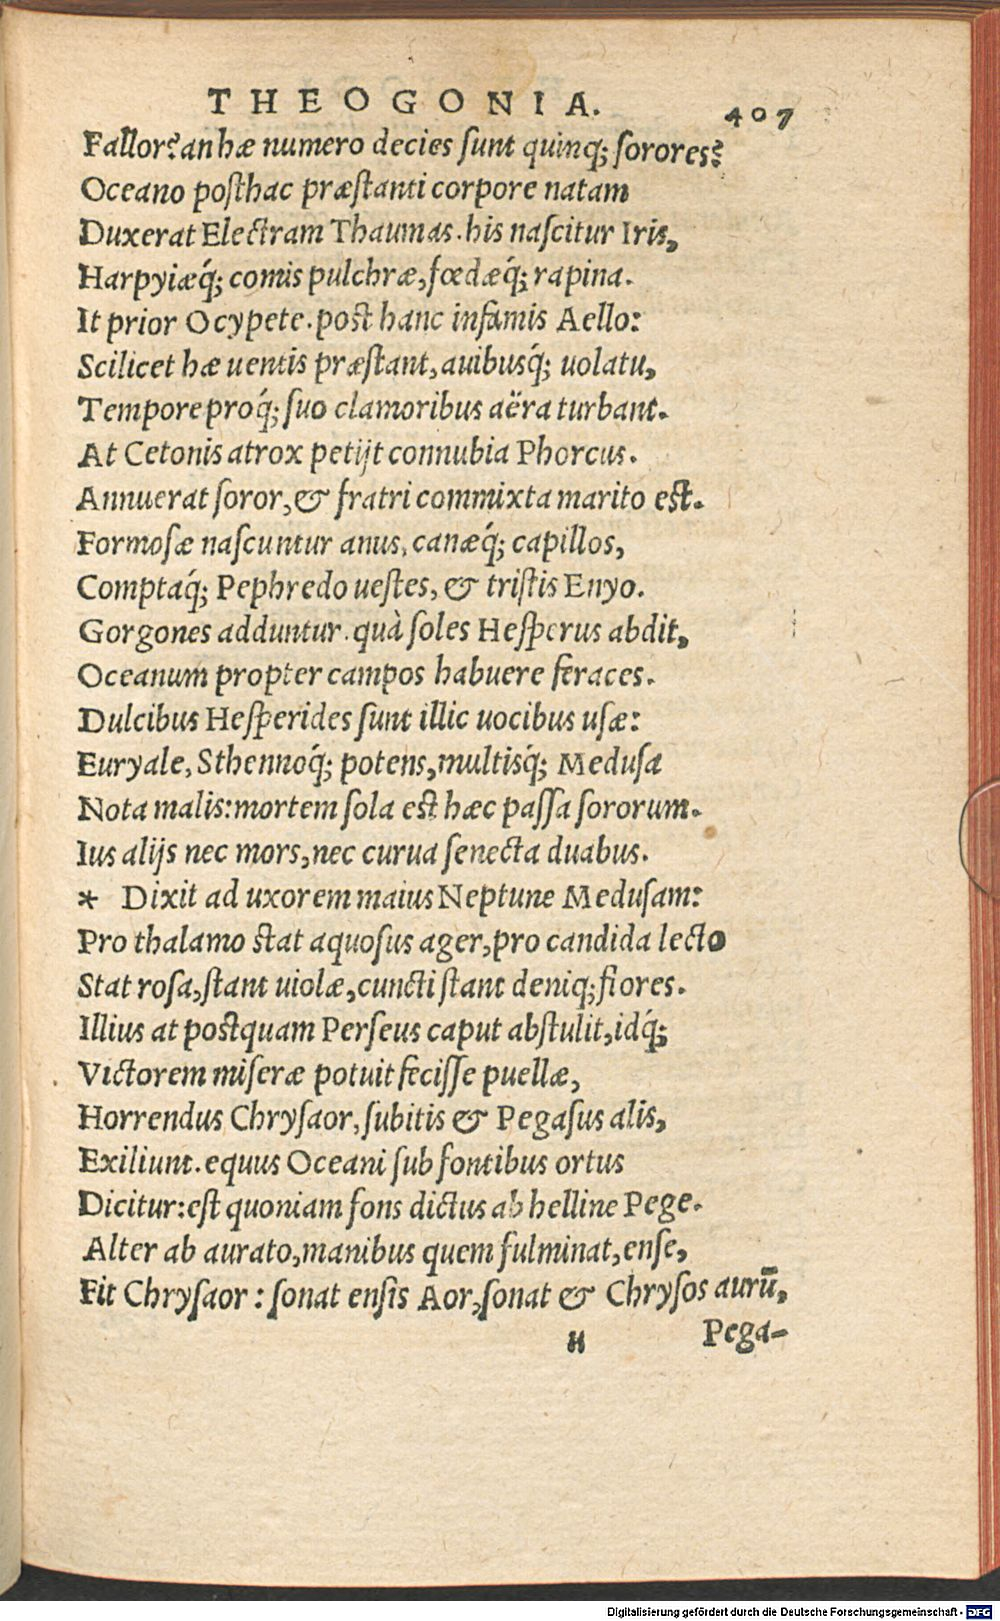 THEOGONIA. 407
Fallor? an hæ numero decies sunt quinq; sorores?
Oceano posthac præstanti corpore natam
Duxerat Electram Thaumas. his nascitur Iris,
Harpyiæq́; comis pulchræ, fœdæq́; rapina.
It prior Ocypete. post hanc infamis Aello:
Scilicet hæ uentis præstant, auibusq́; uolatu,
Tempore proq́; suo clamoribus aëra turbant.
At Cetonis atrox petijt connubia Phorcus.
Annuerat soror, & fratri commixta marito est.
Formosæ nascuntur anus, canæq́; capillos,
Comptaq́; Pephredo uestes, & tristis Enyo.
Gorgones adduntur. quà soles Hesperus abdit,
Oceanum propter campos habuere feraces.
Dulcibus Hesperides sunt illic uocibus usæ:
Euryale, Sthennoq́; potens, multisq́; Medusa
Nota malis: mortem sola est hæc passa sororum.
Ius alijs nec mors, nec curua senecta duabus.
* Dixit ad uxorem maius Neptune Medusam:
Pro thalamo stat aquosus ager, pro candida lecto
Stat rosa, stant uiolæ, cuncti stant deniq; flores.
Illius at postquam Perseus caput abstulit, idq́;
Victorem miseræ potuit fecisse puellæ,
Horrendus Chrysaor, subitis & Pegasus alis,
Exiliunt. equus Oceani sub fontibus ortus
Dicitur: est quoniam fons dictus ab helline Pege.
Alter ab aurato, manibus quem fulminat, ense,
Fit Chrysaor: sonat ensis Aor, sonat & Chrysos aurū,
H Pega-
Digitalisierung gefördert durch die Deutsche Forschungsgemeinschaft - DFG